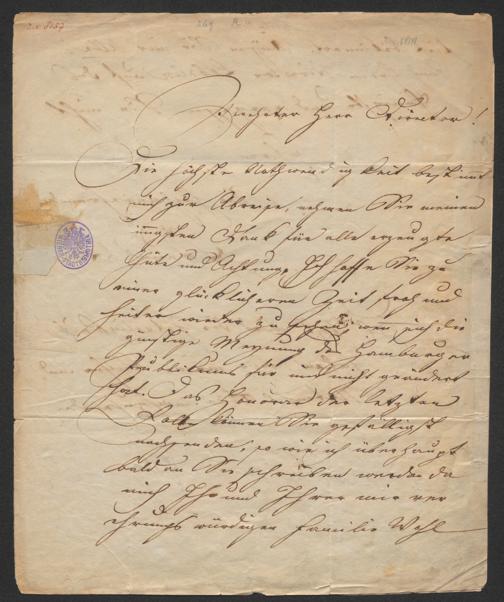 Geehrter Herr Director!
Die höchste Nothwendigkeit bestimmt
mich zur Abreise, nehmen Sie meinen
innigsten Dank für alle erzeugte
Güte und Achtung. Ich hoffe Sie zu
einer glücklicheren Zeit, froh und
heiter wieder zu sehen, wen sich die
günstige Meynung des Hamburger
Publikums für mich nicht geändert
hat. Das Honorar der letzten
Rolle können Sie gefälligst
nachsenden, so wie ich überhaupt
bald an Sie schreiben werde da
mich Ihr und Ihrer mir ver
ehrungswürdigen Familie Wohl